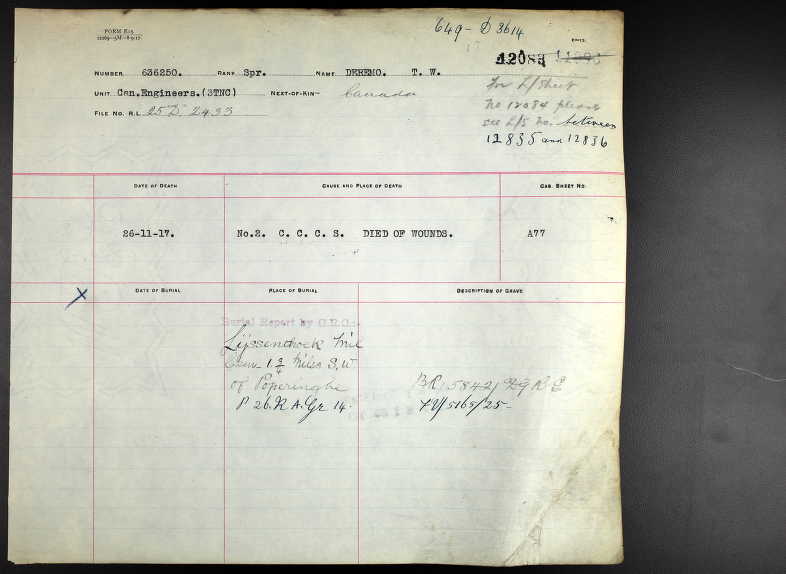 FORM R.15
649 - D 3614
12083
NUMBER 636250. RANK Spr. NAME DEREMO. T. W.
UNIT Can.Engineers.(3TNC) NEXT-OF-KIN Canada
FILE NO. R.L. 25 D. 2433
For L/sheet
No 12084 please
see L/S No. between
12835 and 12836
DATE OF DEATH CAUSE AND PLACE OF DEATH CAS. SHEET NO.
26-11-17. No.2. C. C. C. S. DIED OF WOUNDS. A77
DATE OF BURIAL PLACE OF BURIAL DESCRIPTION OF GRAVE
X
Burial Report by G.R.O:-
Lijssenthoek Mil
Cem 1 3/4 Miles S.W
of Poperinghe
P 26. R A. Gr 14.